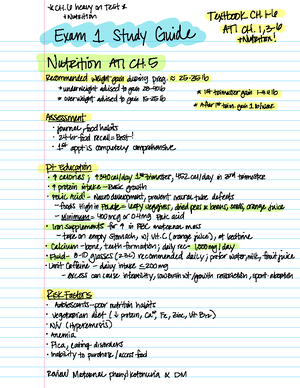 * CH. 6 heavy on Test 1
+ Nutrition
Textbook CH. 1-6
ATI CH. 1, 3-6
+ Nutrition!
Exam 1 Study Guide
Nutrition ATI CH. 5
Recommended weight gain during preg. ≈ 25-35 lb
* underweight advised to gain 28-40 lb
* overweight advised to gain 15-25 lb
* 1st trimester gain 1-4 lb
* After 1st trim. gain 1 lb/week
Assessment
· journal, food habits
· 24-hr food recall = Best!
· 1st appt is computery comprehensive
Pt Education
· ↑ calories; ↑ 340 cal/day 2nd trimester, 452 cal/day in 3rd trimester
· ↑ protein intake - Basic growth
· Folic Acid - Neuro development, prevent neural tube defects
- foods High in Folate = leafy veggies, dried peas & beans, seeds, orange juice
- Minimum = 400 mcg or 0.4 mg Folic acid
· Iron supplements for ↑ in RBC maternal mass
- take on empty stomach, w/ vit. C (orange juice), at bedtime
· Calcium - bone, teeth formation; daily rec = 1,000 mg/day
· Fluid - 8-10 glasses (2.3L) recommended daily; prefer water, milk, fruit juice
· Limit Caffeine - daily intake ≤ 200 mg
- excess can cause infertility, low birth wt./growth restriction, spont. abortion
Risk Factors
· Adolescents - poor nutrition habits
· Vegetarian diet (↓ protein, Ca, Fe, Zinc, Vit B12)
· N/V (Hyperemesis)
· Anemia
· Pica, eating disorders
· Inability to purchase/access food
Review Maternal phenylketonuria & DM